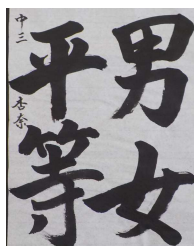 男女
平等
中三 杏奈